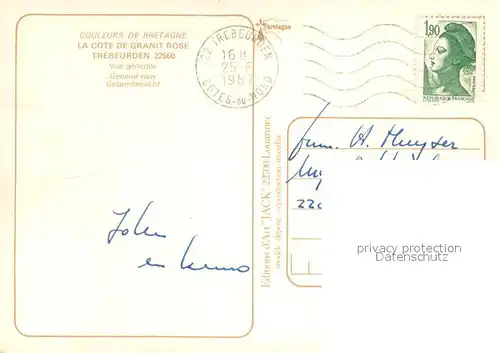 COULEURS DE BRETAGNE
LA COTE DE GRANIT ROSE
TRÉBEURDEN 22560
Vue générale
General view
Gesamtansicht
Bretagne
22 TREBEURDEN
16 H
25-6
198
COTES-DU-NORD
1,90
REPUBLIQUE FRANÇAISE
Editions d'Art "JACK" 22700 Louannec
modèle déposé - reproduction interdite
Fam. A. Huyser
220
John
en
privacy protection
Datenschutz